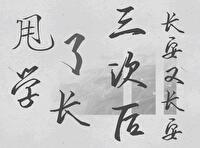 甩了
学长
三次后
长安又长安